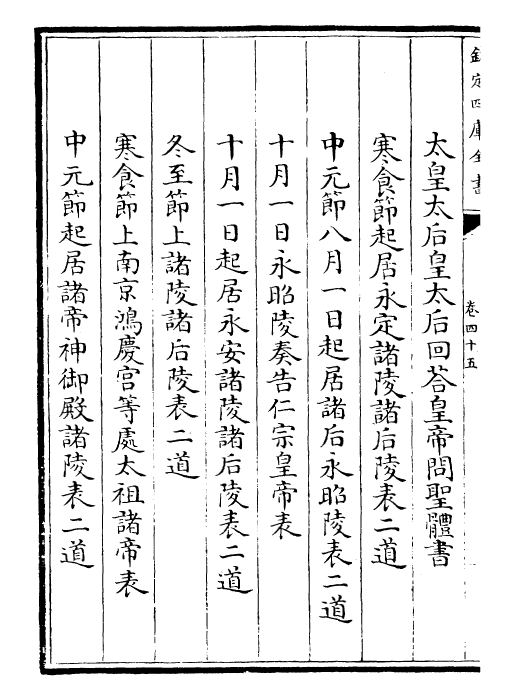 欽定四庫全書
卷四十五
太皇太后皇太后回荅皇帝問聖體書
寒食節起居永定諸陵諸后陵表二道
中元節八月一日起居諸后永昭陵表二道
十月一日永昭陵奏告仁宗皇帝表
十月一日起居永安諸陵諸后陵表二道
冬至節上諸陵諸后陵表二道
寒食節上南京鴻慶宮等處太祖諸帝表
中元節起居諸帝神御殿諸陵表二道